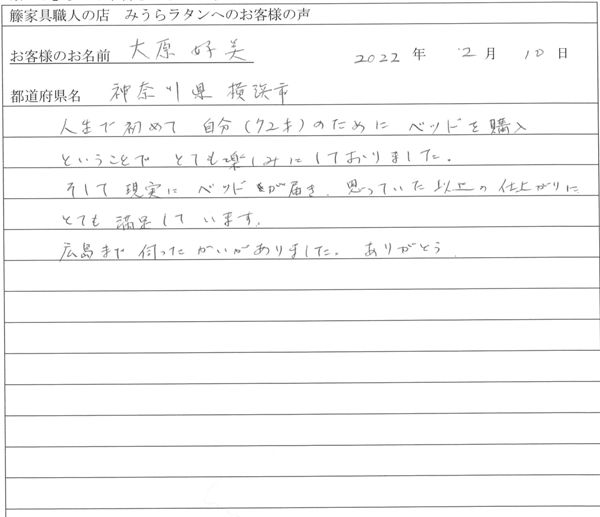 籐家具職人の店 みうらラタンへのお客様の声
お客様のお名前 大原好美 2022年 2月 10日
都道府県名 神奈川県横浜市
人生で初めて 自分(72才)のために ベッドを購入
ということで とても楽しみにしておりました。
そして現実に ベッドが届き、思っていた以上の仕上がりに
とても満足しています。
広島まで伺ったかいがありました。 ありがとう